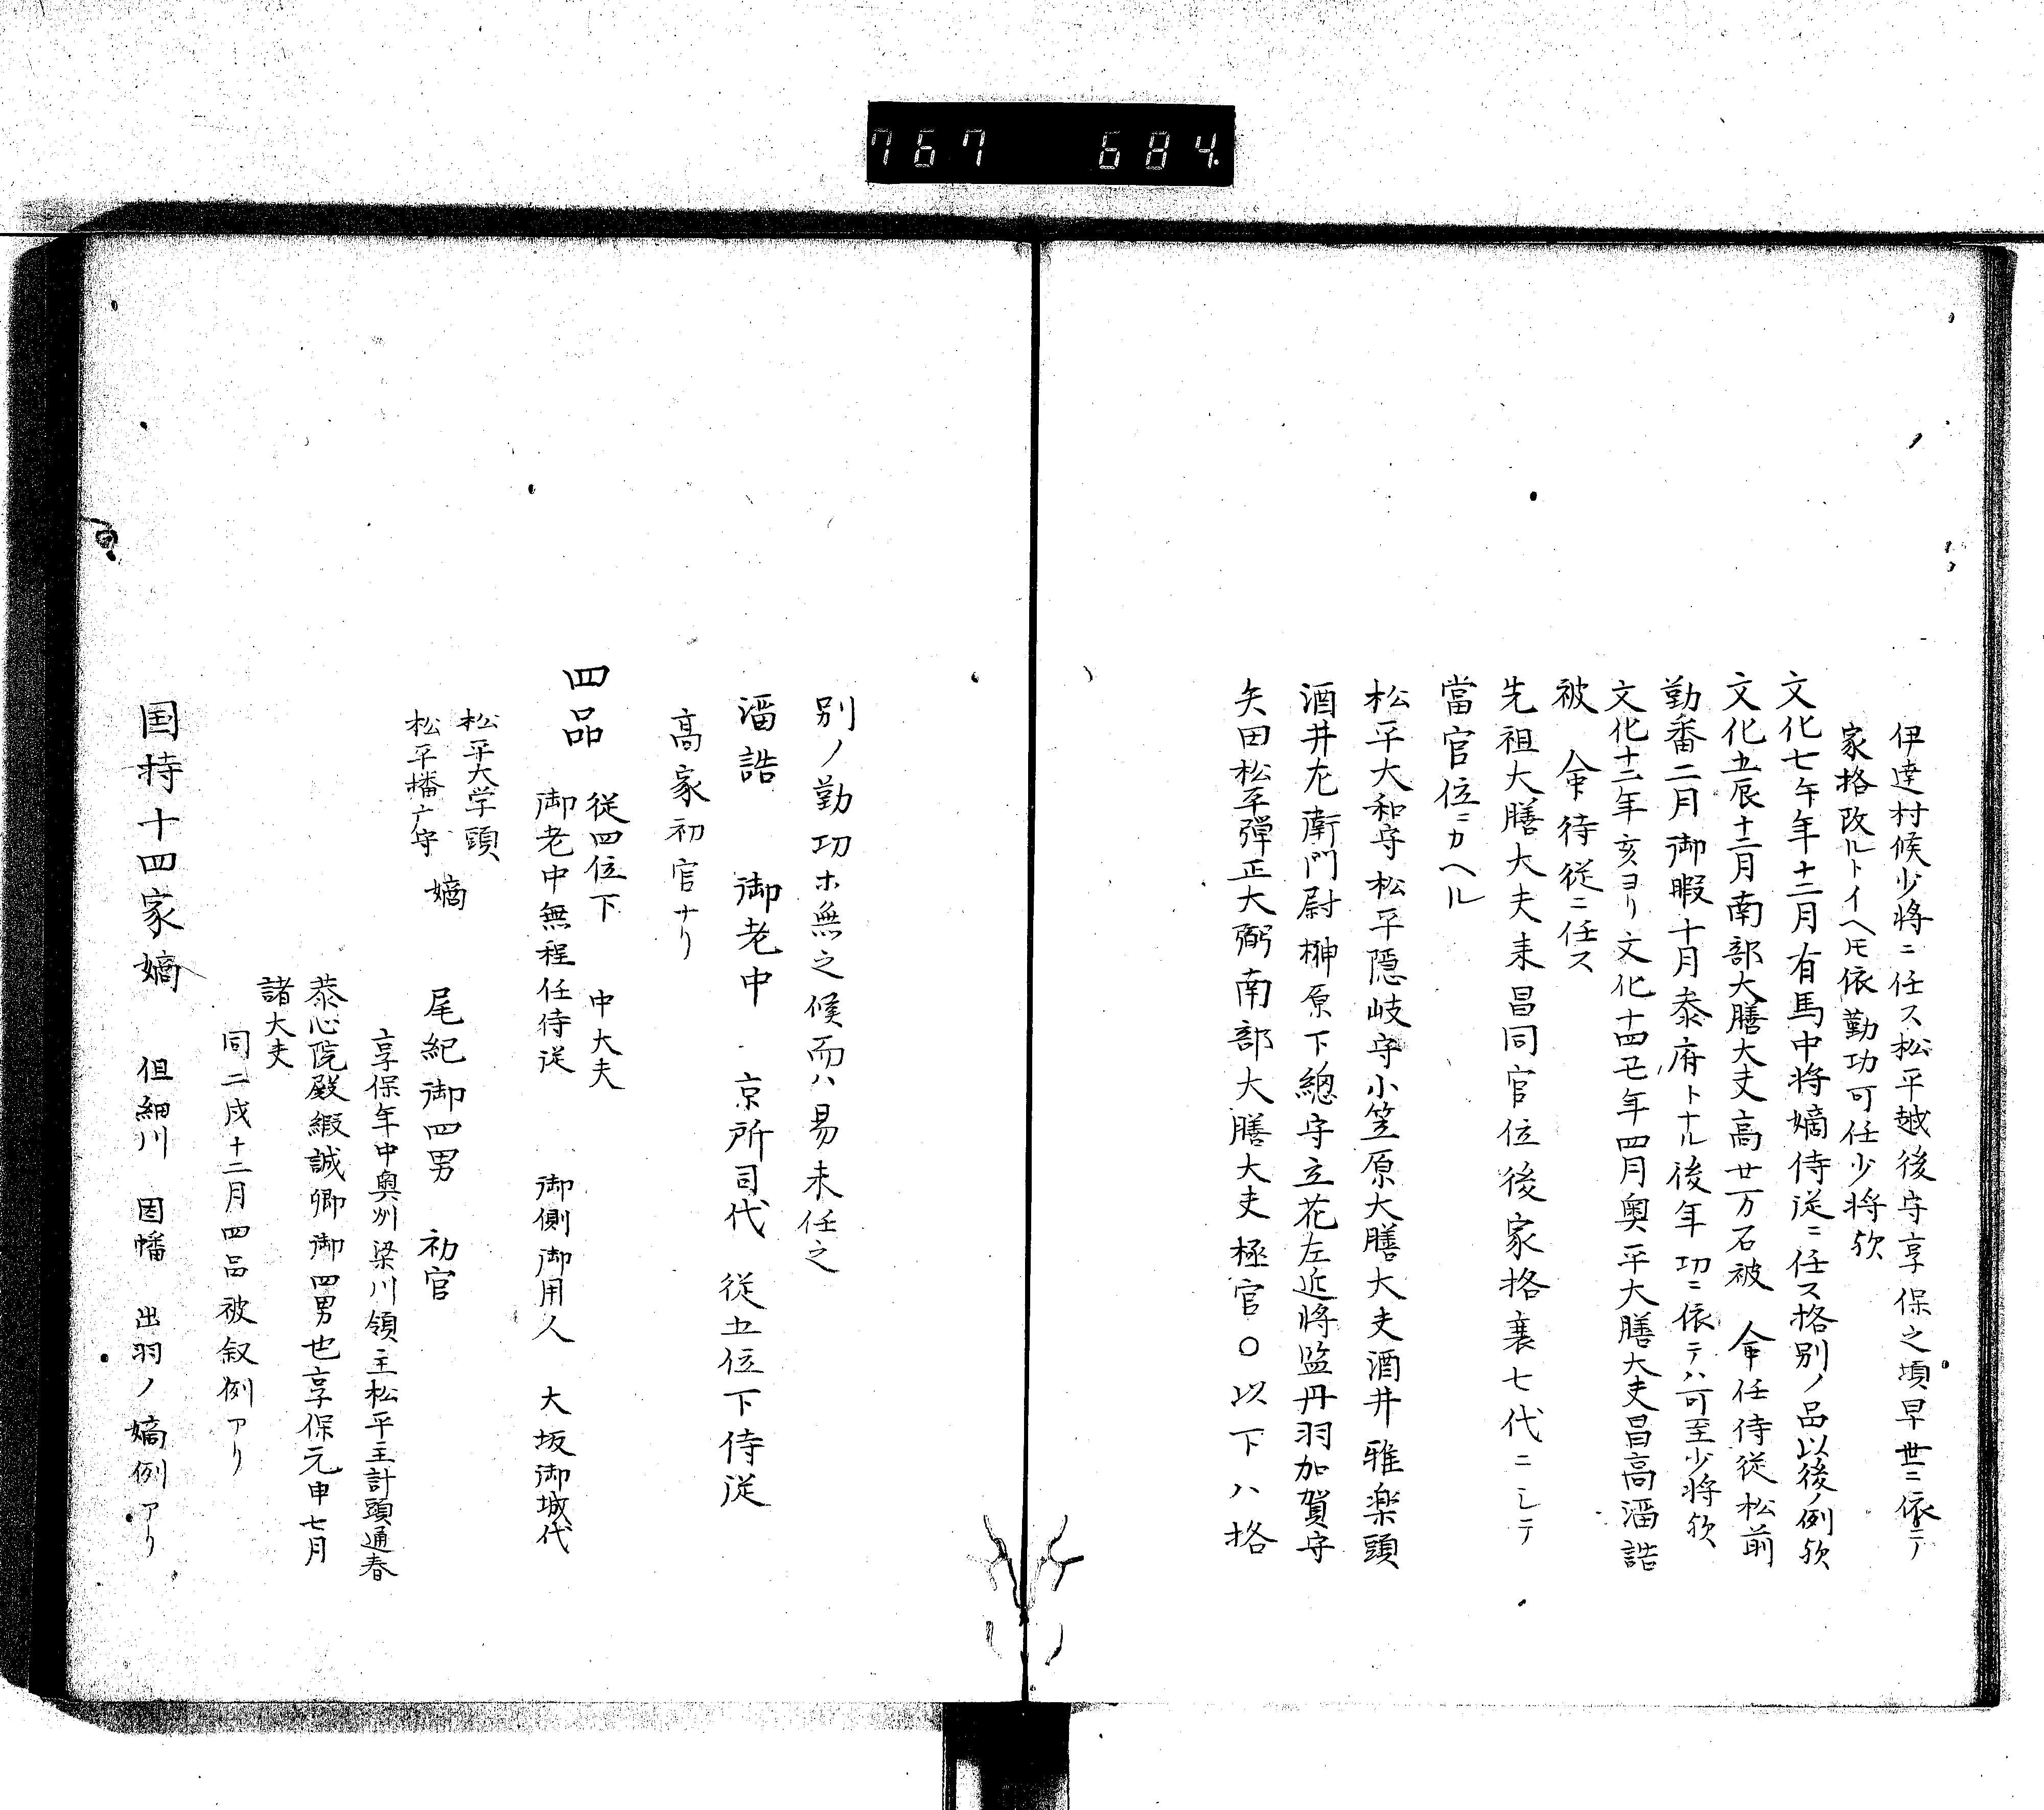 767 684
伊達村候少将ニ任ス松平越後守享保之頃早世ニ依テ
家格改ルトイヘモ依勤功可任少将欤
文化七午年十二月有馬中将嫡侍従ニ任ス格別ノ品以後ノ例欤
文化五辰十二月南部大膳大夫高廿万石被　命任侍従松前
勤番二月御暇十月泰府トナル後年功ニ依テハ可至少将欤
文化十二年亥ヨリ文化十四丑年四月奥平大膳大夫昌高溜詰
被　命侍従ニ任ス
先祖大膳大夫来昌同官位後家格襄七代ニシテ
當官位ニカヘル
松平大和守松平隠岐守小笠原大膳大夫酒井雅楽頭
酒井左衛門尉榊原下總守立花左近将監丹羽加賀守
矢田松平弾正大弼南部大膳大夫極官○以下ハ格
別ノ勤功ホ無之候而ハ易未任之
溜詰　御老中　京所司代　従五位下侍従
高家初官ナリ
四品　従四位下　中大夫
御老中無程任侍従　御側御用人　大坂御城代
松平大学頭
松平播广守　嫡　尾紀御四男　初官
享保年中奥州梁川領主松平主計頭通春
泰心院殿綱誠卿御四男也享保元申七月
諸大夫
同二戌十二月四品被叙例アリ
国持十四家嫡　但細川　因幡　出羽ノ嫡例アリ